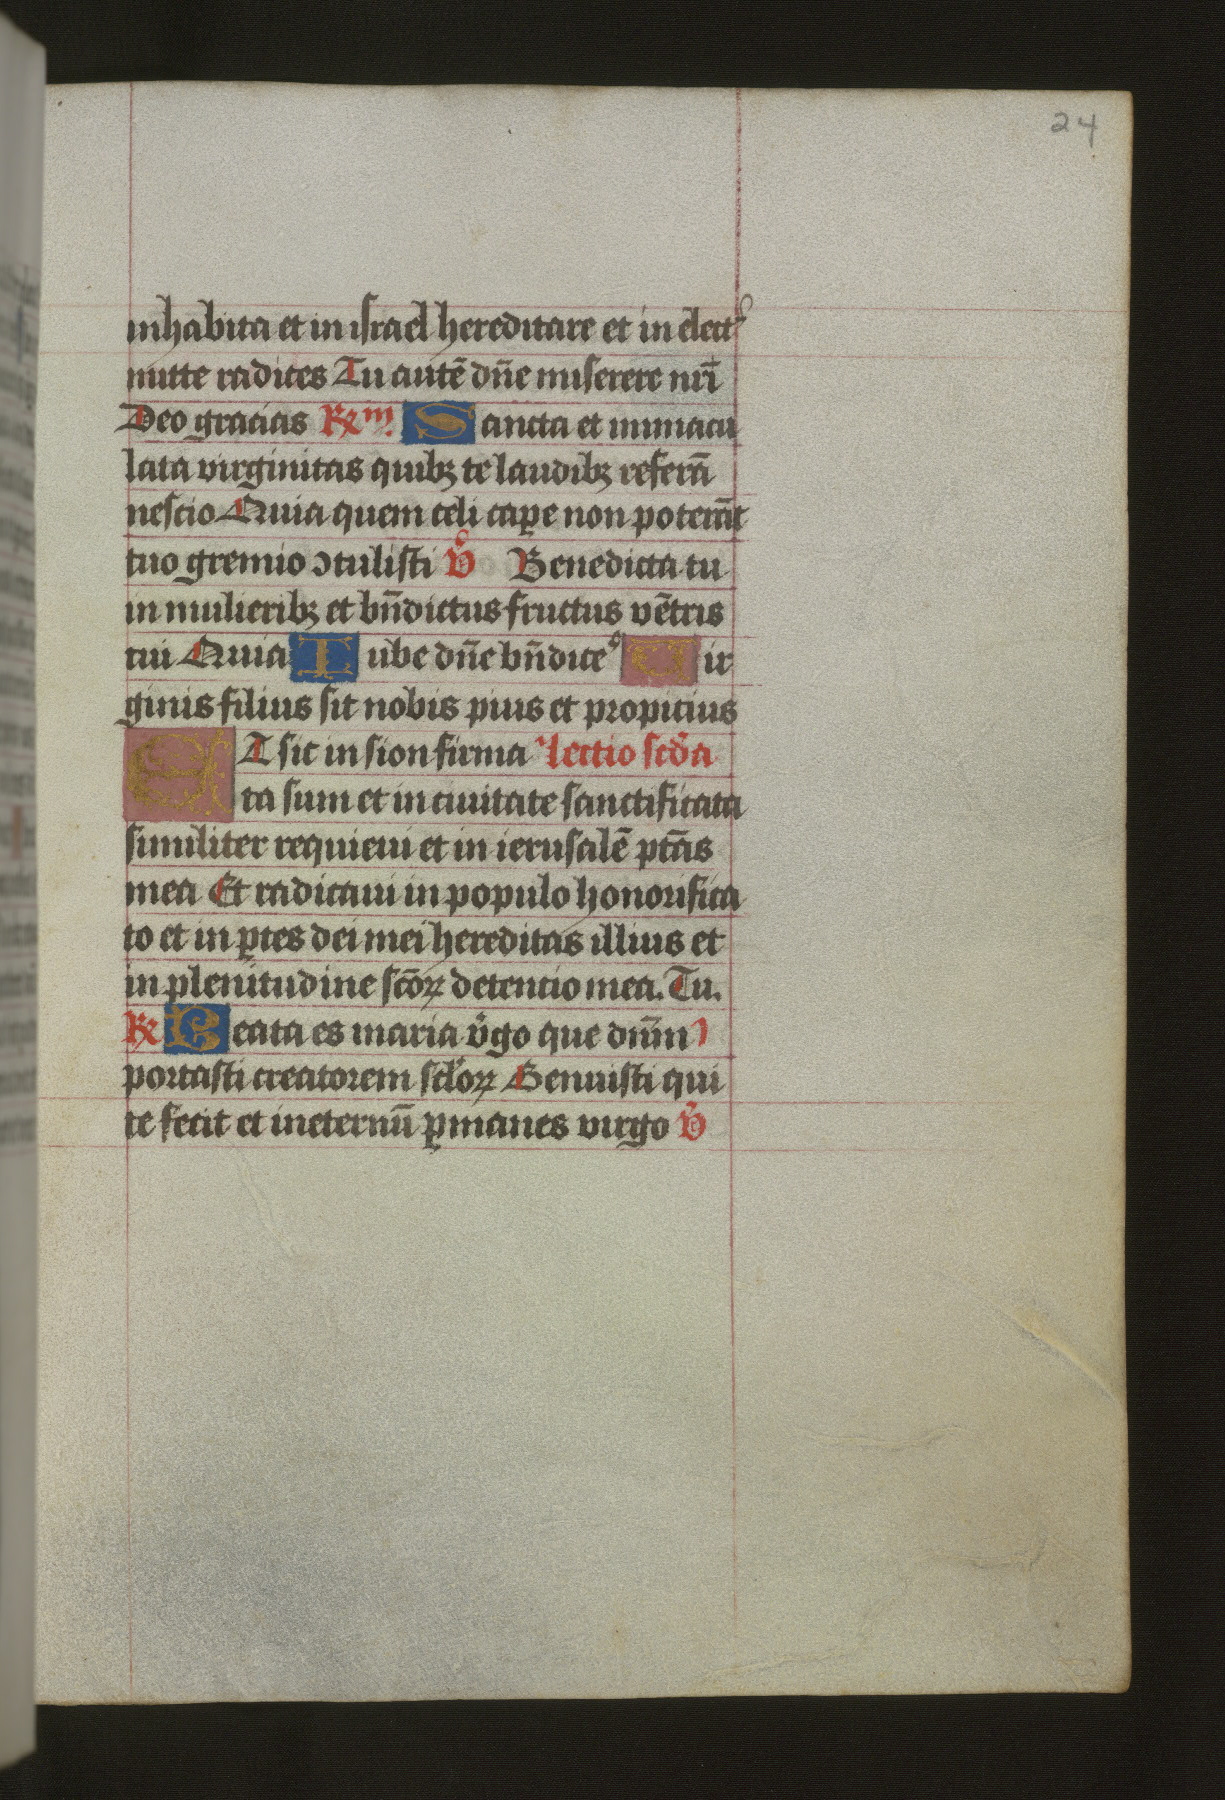 24
inhabita et in israel hereditare et in elect᷒
mitte radices Tu autē dn̄e miserere nr̄i
Deo gracias R̷m̄ Sancta et immacu
lata virginitas quibꝫ te laudibꝫ referā
nescio Quia quem celi cape non poterāt
tuo gremio ↄtulisti v̄ Benedicta tu
in mulieribꝫ et bn̄dictus fructus vētris
tui Quia Iube dn̄e bn̄dice᷒ Vir
ginis filius sit nobis pius et propicius
ET sic in sion firma lectio scd̄a
ta sum et in ciuitate sanctificata
similiter requieui et in ierusalē ptās
mea Et radicaui in populo honorifica
to et in ꝑtes dei mei hereditas illius et
in plenitudine scōꝝ detentio mea. Tu.
R̷ Beata es maria v̄go que dn̄m
portasti creatorem scl̄oꝝ Genuisti qui
te fecit et ineternū ꝑmanes virgo v̄